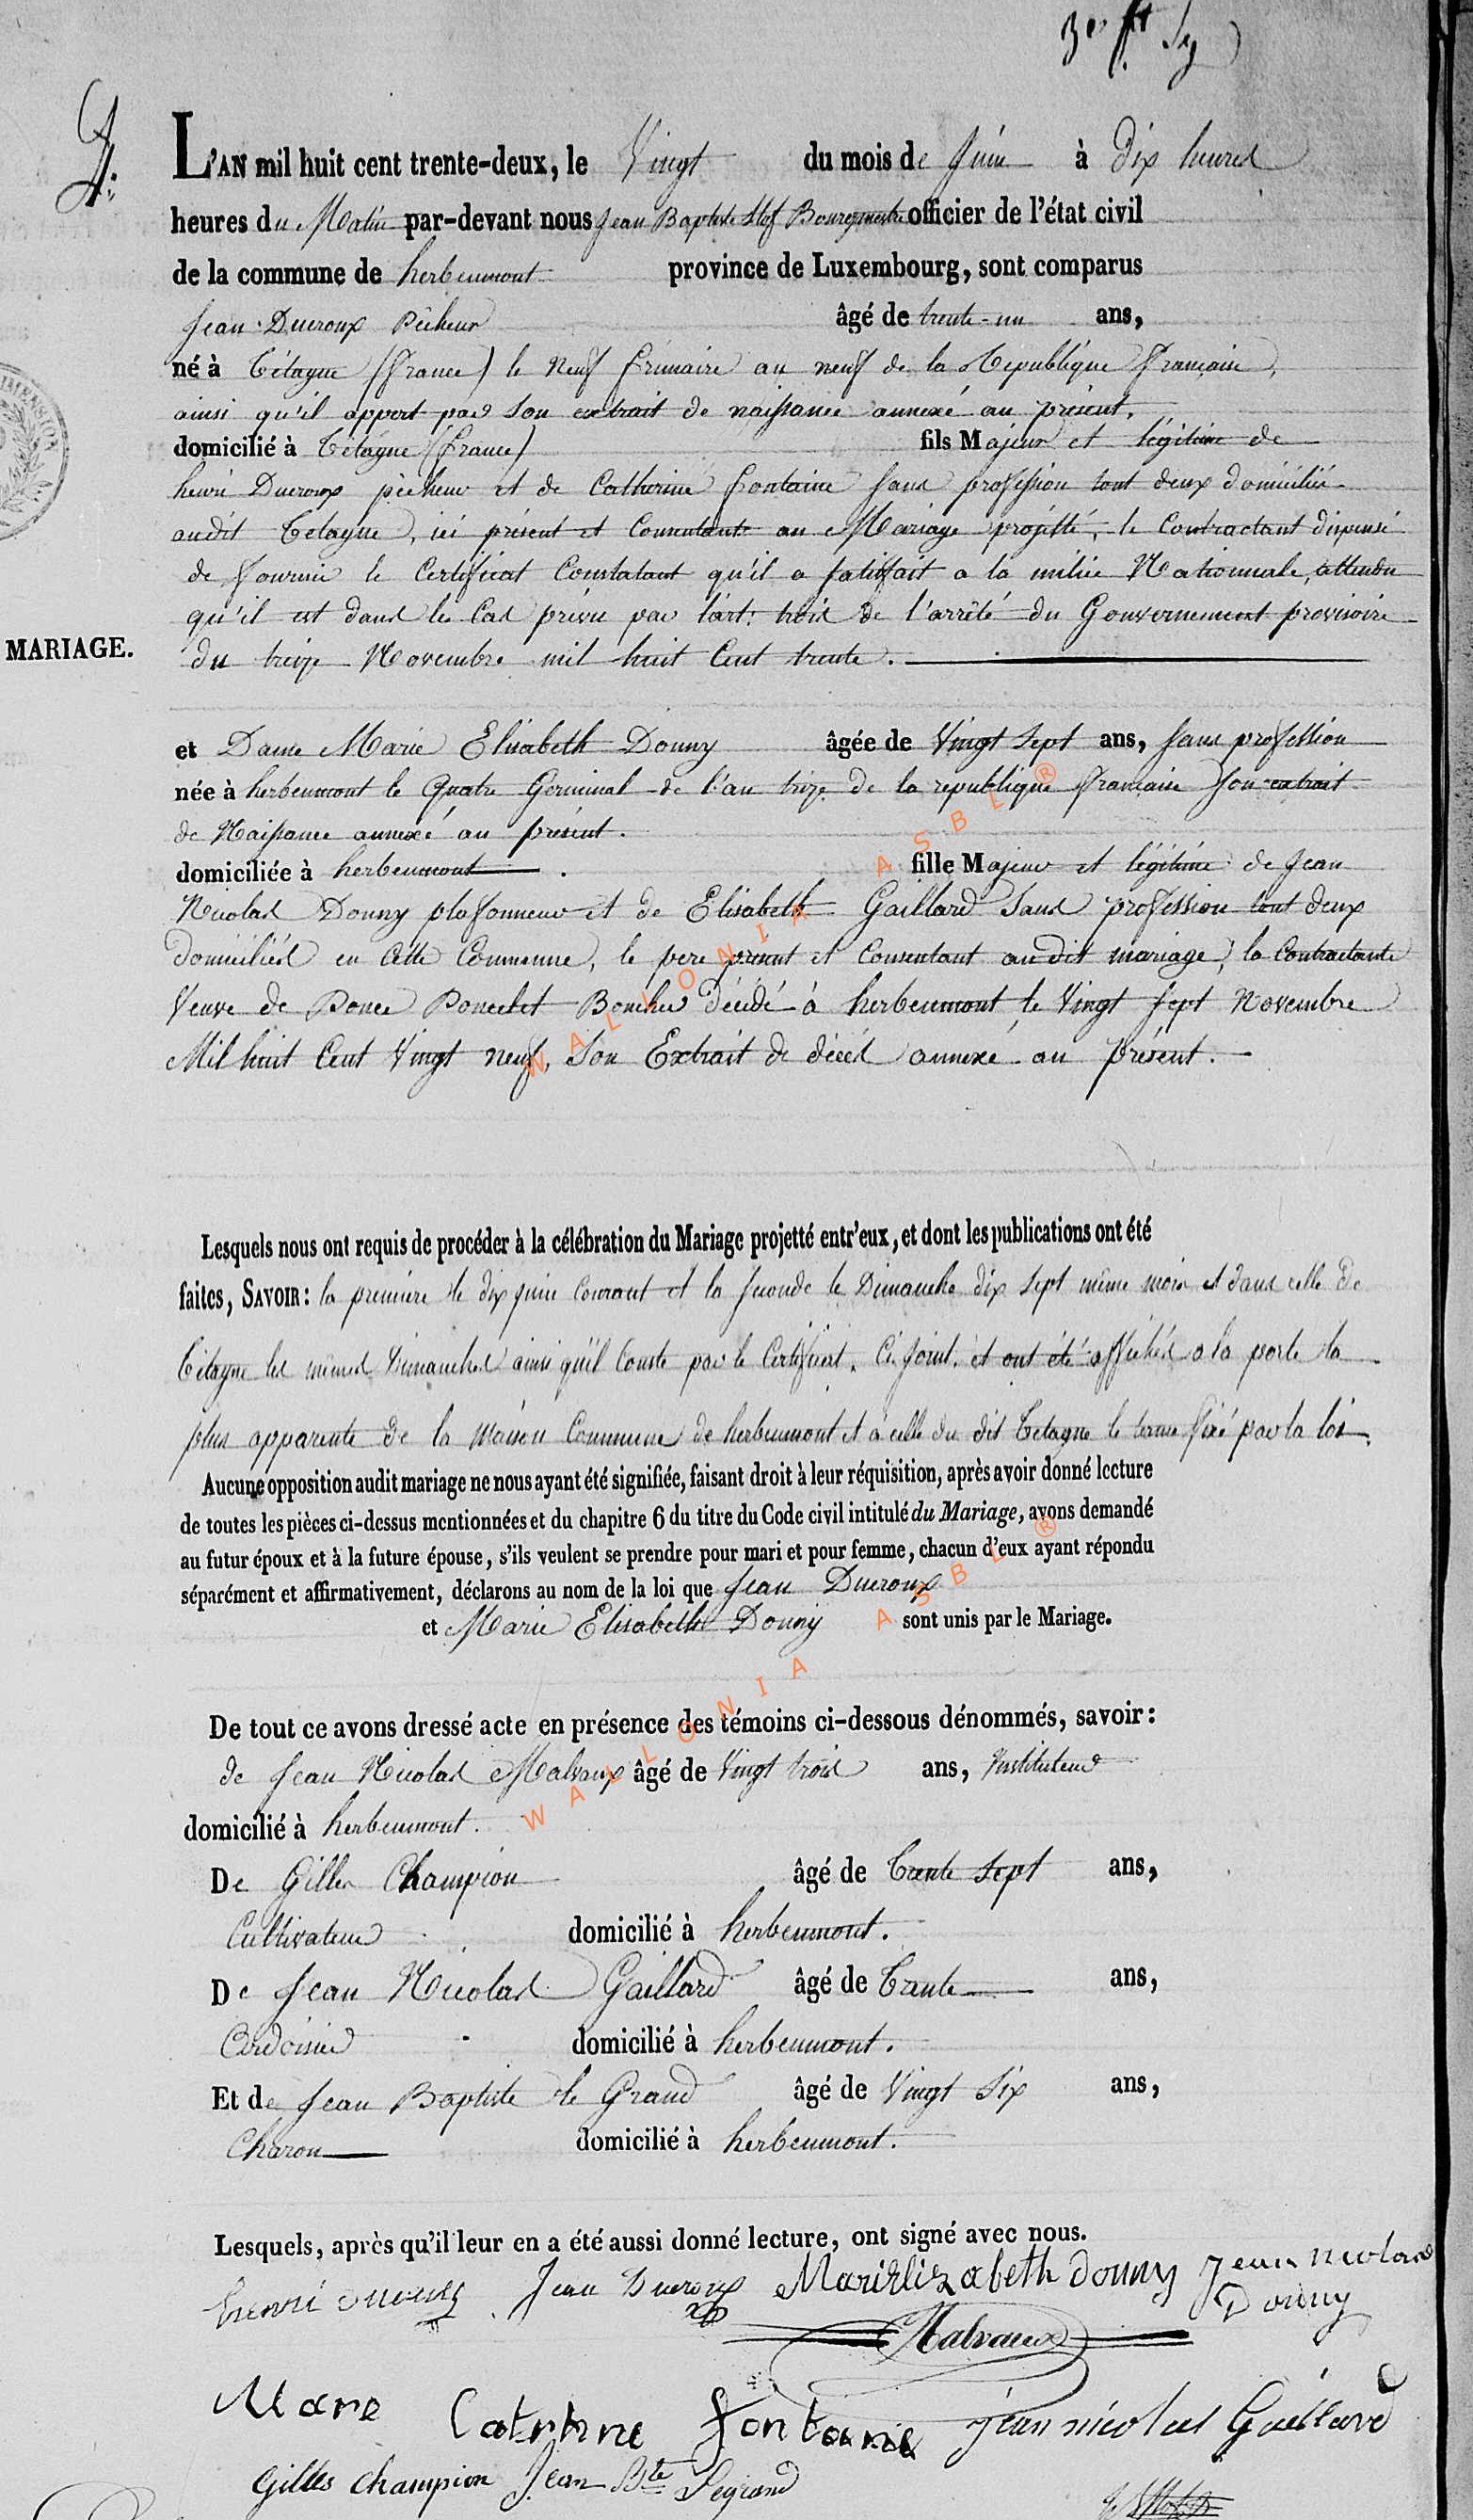 4.
L'AN mil huit cent trente-deux, le Vingt du mois de Juin à Dix heures
heures du Matin par-devant nous Jean Baptiste Stof Bourgmestre officier de l'état civil
de la commune de herbeumont province de Luxembourg, sont comparus
Jean Ducroux Pêcheur âgé de trente-un ans,
né à Tétagne (france) le Neuf frimaire an neuf de la République française,
ainsi qu'il appert par son extrait de naissance annexé au présent.
domicilié à Tétagne (france) fils Majeur et légitime de
henri Ducroux pêcheur et de Catherine fontaine sans profession tout deux domiciliés
audit Tetagne, ici présent et Consentants au Mariage projetté, le Contractant dispensé
de fournir le Certificat Constatant qu'il a satisfait a la milice Nationnale, attendu
qu'il est dans le Cas prévu par l'art: trois de l'arrêté du Gouvernement provisoire
MARIAGE.
du treize Novembre mil huit Cent trente.
et Dame Marie Elisabeth Donny âgée de Vingt Sept ans, sans profession
née à herbeumont le Quatre Germinal de l'an treize de la republique française son extrait
de Naissance annexé au présent.
domiciliée à herbeumont. fille Majeur et légitime de Jean
Nicolas Donny plafonneur et de Elisabeth Gaillard Sans profession tout deux
domiciliés en cette Commune, le pere présent et Consentant au dit mariage, la Contractante
Veuve de Ponce Poncelet Boucher décédé à herbeumont le Vingt Sept Novembre
Mil huit Cent Vingt neuf, Son Extrait de décès annexé au présent.
Lesquels nous ont requis de procéder à la célébration du Mariage projetté entr'eux, et dont les publications ont été
faites, SAVOIR: la premiere le dix juin Courant et la seconde le Dimanche dix sept même mois et dans celle de
Tétagne les mêmes Dimanches ainsi qu'il Conste par le Certificat, Ci-joint, et ont été affichés a la porte la
plus apparente de la Maison Commune de herbeumont et à celle du dit Tetagne le terme fixé par la loi.
Aucune opposition audit mariage ne nous ayant été signifiée, faisant droit à leur réquisition, après avoir donné lecture
de toutes les pièces ci-dessus mentionnées et du chapitre 6 du titre du Code civil intitulé du Mariage, avons demandé
au futur époux et à la future épouse, s'ils veulent se prendre pour mari et pour femme, chacun d'eux ayant répondu
séparément et affirmativement, déclarons au nom de la loi que Jean Ducroux
et Marie Elisabeth Donny sont unis par le Mariage.
De tout ce avons dressé acte en présence des témoins ci-dessous dénommés, savoir:
de Jean Nicolas Malvaux âgé de Vingt trois ans, Instituteur
domicilié à herbeumont.
De Gilles Champion âgé de Trente Sept ans,
Cultivateur domicilié à herbeumont.
De Jean Nicolas Gaillard âgé de Trente ans,
Ardoisier domicilié à herbeumont.
Et de Jean Baptiste le Grand âgé de Vingt Six ans,
Charon domicilié à herbeumont.
Lesquels, après qu'il leur en a été aussi donné lecture, ont signé avec nous.
henri Jean Ducroux Marielizabeth donny Jean nicolas
Donny
Malvaux
Mare Catrhne fontane jean nicolas Gaillard
Gilles champion Jean Bte Legrand
WALLONIA ASBL ®
WALLONIA ASBL ®